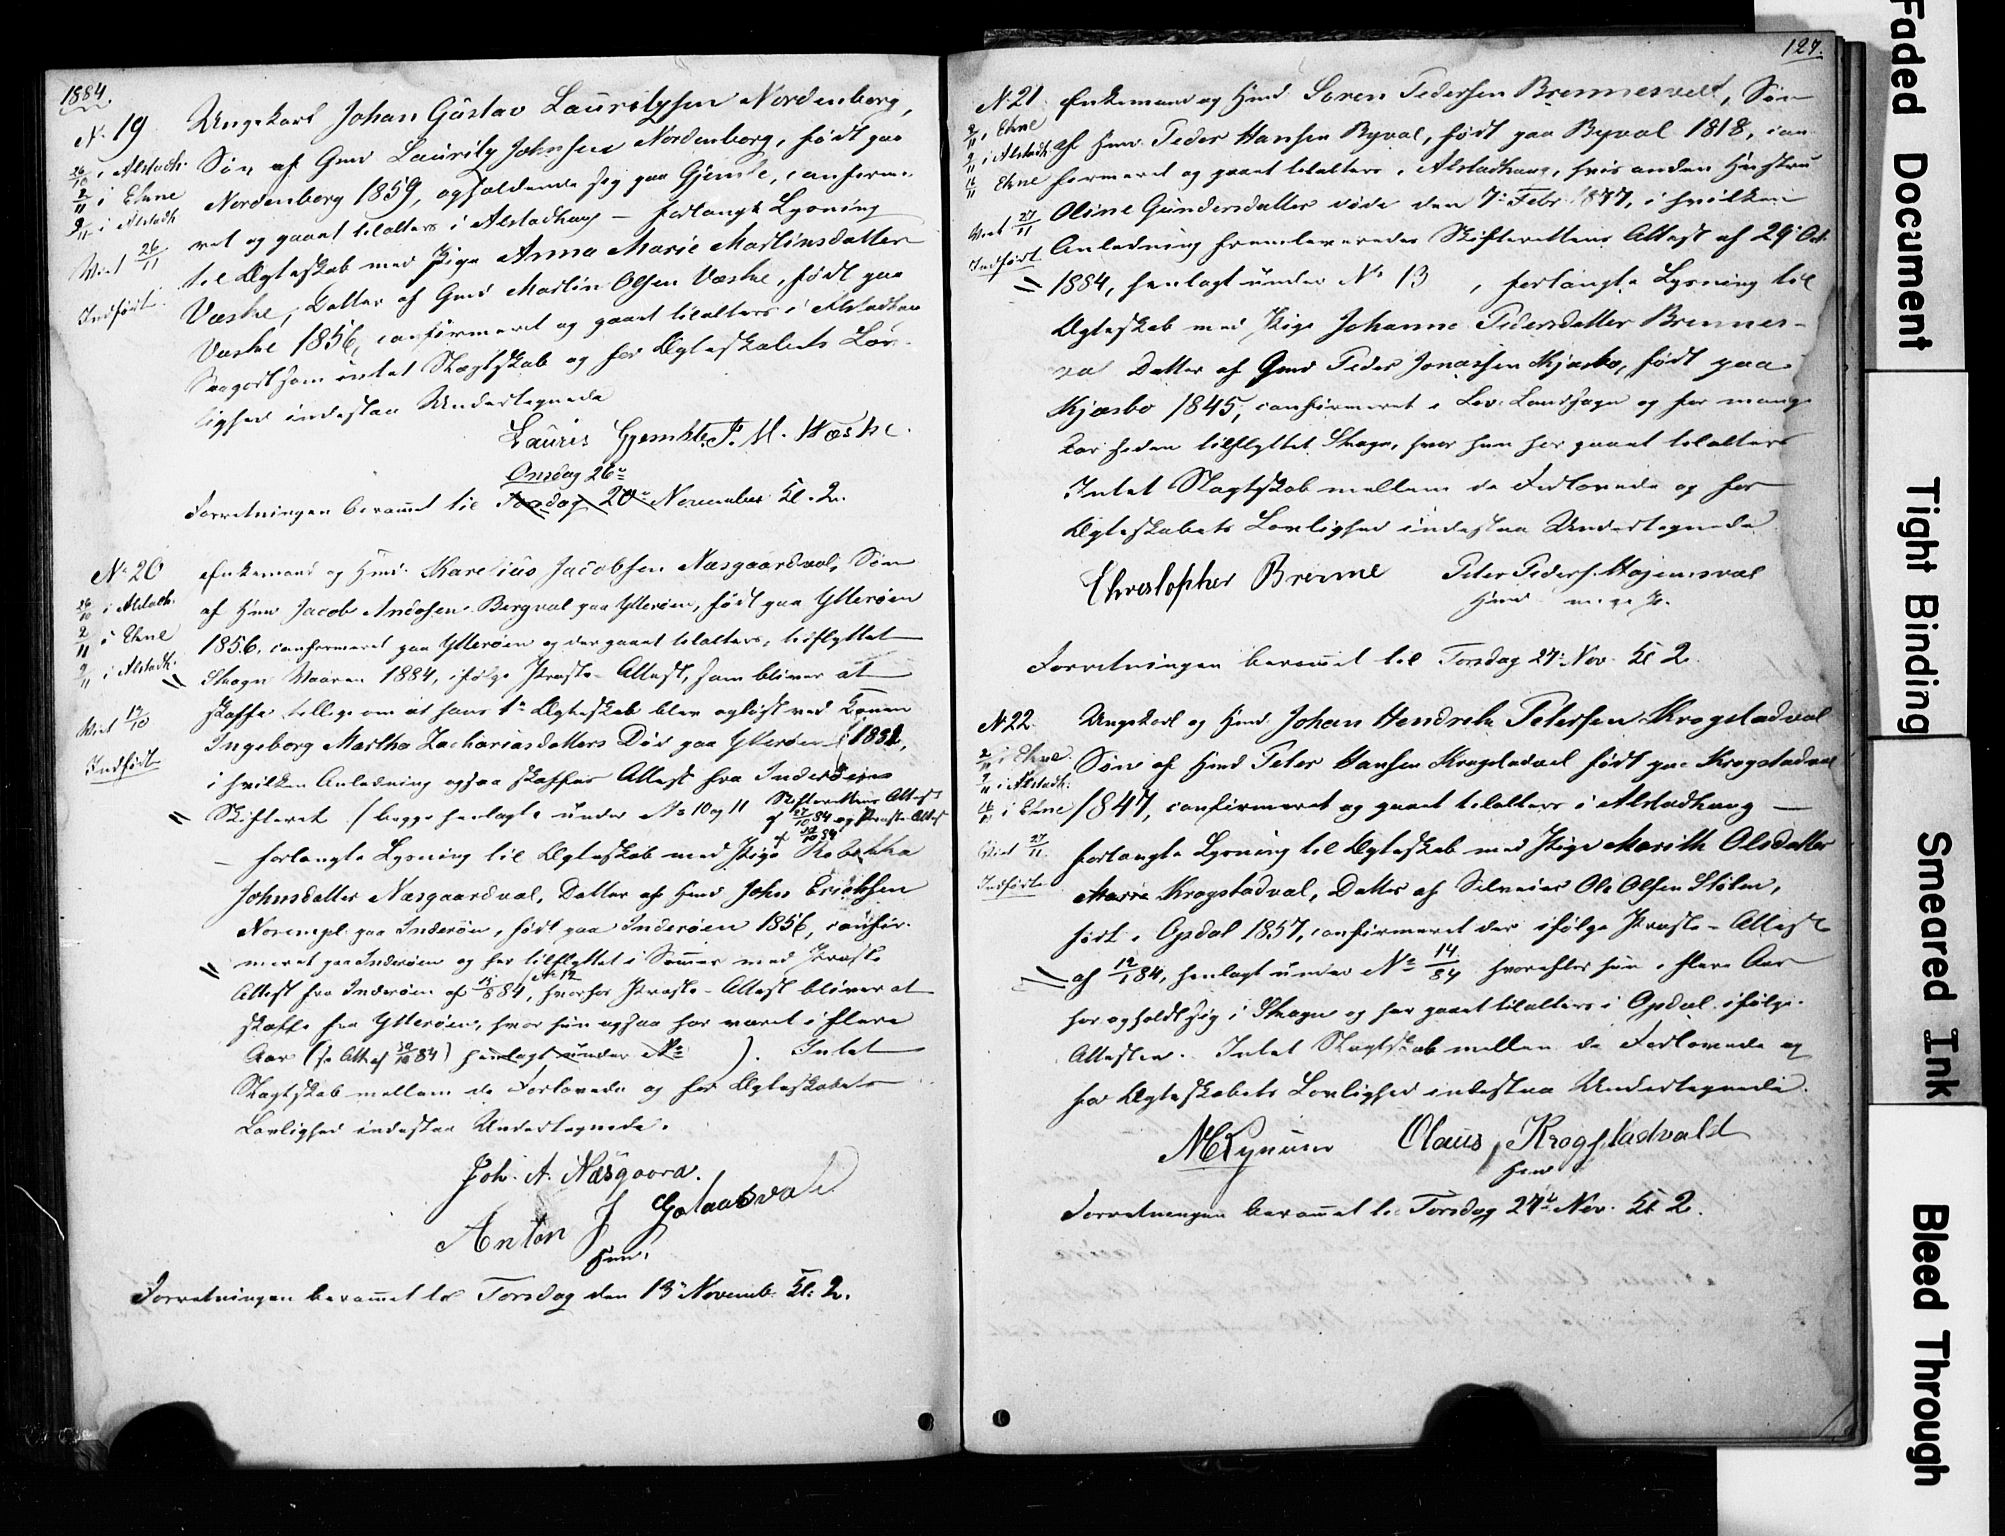 1884.
N. 19 Ungekarl Johan Gustav Lauritzsen Nordenborg,
26/10 i Alstadh. Søn af Gmd Lauritz Johnsen Nordenborg, født paa
2/11 i Ekne Nordenborg 1859, opholdende sig paa Gjemble, confirme-
9/11 i Alstadh ret og gaaet tilalters i Alstadhaug – forlangte Lysning
Viet 26/11 til Ægteskab med Pige Anna Marie Martinsdatter
Indført. Væske, Datter af Gmd Martin Olsen Væske, født paa
Væske 1856, confirmeret og gaaet tilalters i Alstadhau
Saagodtsom intet Slægtskab og for Ægteskabets Lov-
lighed indestaa Undertegnede
Lauris Gjemble. M. Væske.
Onsdag 26de
Forretningen berammet til Torsdag 20de November Kl. 2.
N. 20 Enkemand og Hmd. Karelius Jacobsen Næsgaardval, Søn
26/10 i Alstadh. af Hmd Jacob Andosen Bergval paa Ytterøen, født paa Ytterøen
2/11 i Ekne 1856, confirmeret paa Ytterøen og der gaaet tilalters, tilflyttet
9/11 i Alstadh. Skogn Vaaren 1884, ifølge Præste-Attest, som bliver at
Viet 13/10 skaffe tillige om at hans 1te Ægteskab blev opløst ved Konen
Indført Ingeborg Martha Zachariasdatters Død paa Ytterøen 1881,
i hvilken Anledning ogsaa skaffes Attest fra Inderøens
Skifteret (begge henlagte under No 10 og 11 Skifterettens Attest
af 27/10 84 og Præste-Attest
af 30/10 84
– forlangte Lysning til Ægteskab med Pige Rebekka
Johnsdatter Næsgaardval, Datter af Hmd John Erichsen
Norempl. paa Inderøen, født paa Inderøen 1856, confir-
meret paa Inderøen og har tilflyttet i Sommer med Præste
Attest fra Inderøen af 84, No 12 hvorfor Præste-Attest bliver at
skaffe fra Ytterøen, hvor hun ogsaa har været i flere
Aar (se Att af 30/10 84) henlagt under No ). Intet
Slægtskab mellem de Forlovede og for Ægteskabets
Lovlighed indestaa Undertegnede.
Joh. A. Næsgaard.
Anton J Golaasvald
Hmd.
Forretningen berammet til Torsdag den 13de Novemb. Kl. 2.
127.
N. 21 Enkemand og Hmd Soren Pedersen Brennesvedt, Søn
2/11 i Ekne af Hmd. Peder Hansen Byval, født paa Byval 1818, con-
9/11 i Alstadh firmeret og gaaet tilalters i Alstadhaug, hvis anden Hustru
16/11 Ekne Oline Gundersdatter døde den 7de Febr 1877, i hvilken
Viet 27/11 Anledning fremleveredes Skifterettens Attest af 29de Oct
Indført 1884, henlagt under No 13 , forlangte Lysning til
Ægteskab med Pige Johanne Pedersdatter Brennes-
val Datter af Gmd Peder Jonassen Kjæsbo, født paa
Kjæsbo 1845, confirmeret i Lex. Landsogn og for mange
Aar siden tilflyttet Skogn, hvor hun har gaaet tilalters
Intet Slægtskab mellem de Forlovede og for
Ægteskabets Lovlighed indestaa Undertegnede
Christopher Brenne Peter Peders. Højemsval
Hmd m. p. P.
Forretningen berammet til Torsdag 27de Nov. Kl 2.
N. 22. Ungekarl og Hmd Johan Hendrik Petersen Krogstadval
2/11 i Ekne. Søn af Hmd Peter Hansen Krogstadval født paa Krogstadval
9/11 i Alstadh. 1847, confirmeret og gaaet tilalters i Alstadhaug –
16/11 i Ekne forlangte Lysning til Ægteskab med Pige Marith Olsdatter
Viet 27/11 Marie Krogstadval, Datter af Selveier Ole Olsen Stølen,
Indført født i Opdal 1857, confirmeret der ifølge Præste-Attest
af 12/1 84, henlagt under No 14/84 hvorefter hun i flere Aar
har opholdt sig i Skogn og har gaaet tilalters i Opdal ifølge
Attesten. Intet Slægtskab mellem de Forlovede og
for Ægteskabets Lovlighed indestaa Undertegnede.
M Rynum Olaus Krogstadvald
Hmd
Forretningen berammet til Torsdag 27de Nov. Kl 2.
Faded Document
Tight Binding
Smeared Ink
Bleed Through